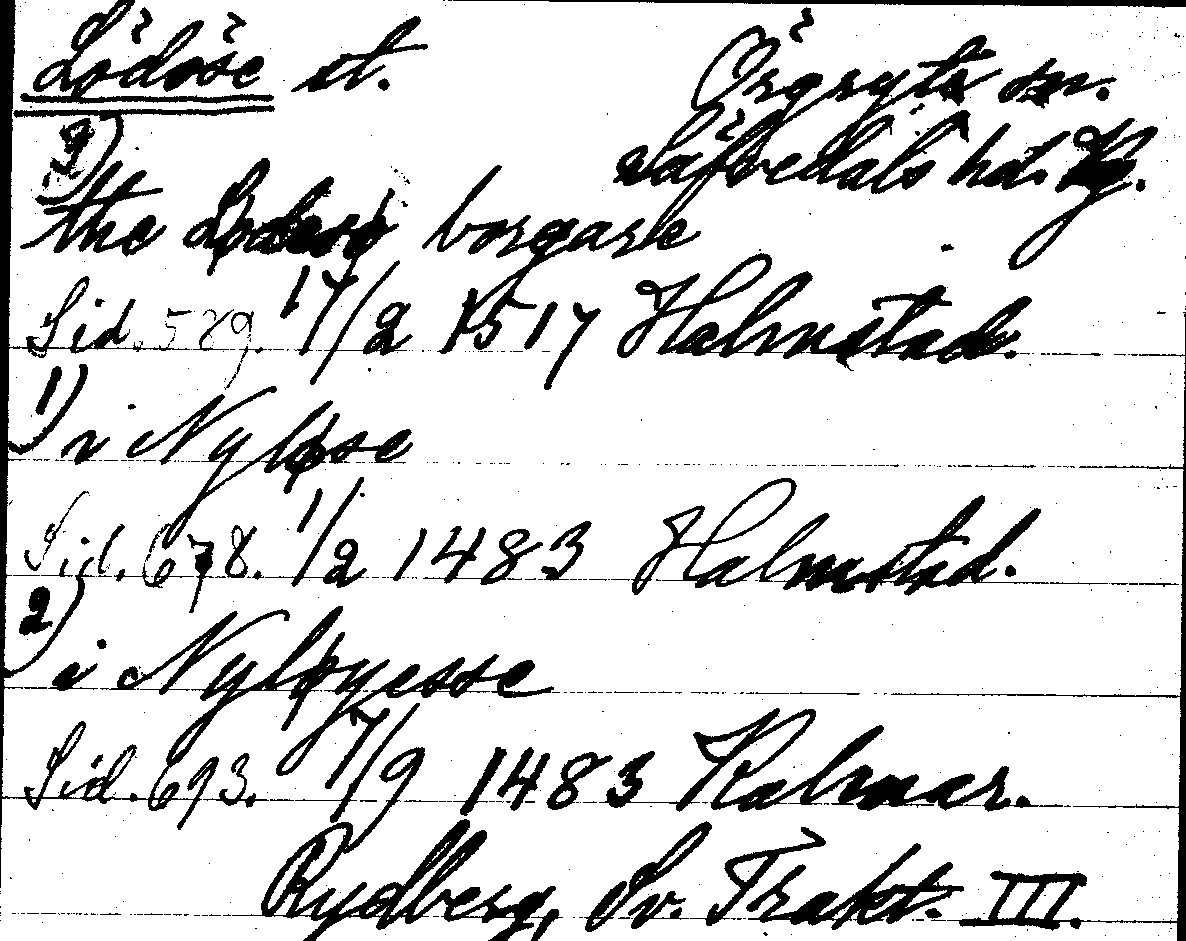 Lödöse st. Örgryte sn.
Säfvedals hd. Vg.
3)
the Lødesø borgare
Sid. 589. 17/2 1517 Halmstad.
1) i Nyløse
Sid. 678. 1/2 1483 Halmstad.
2) i Nyløyesse
Sid. 693. 7/9 1483 Kalmar.
Rydberg, Sv. Trakt. III.